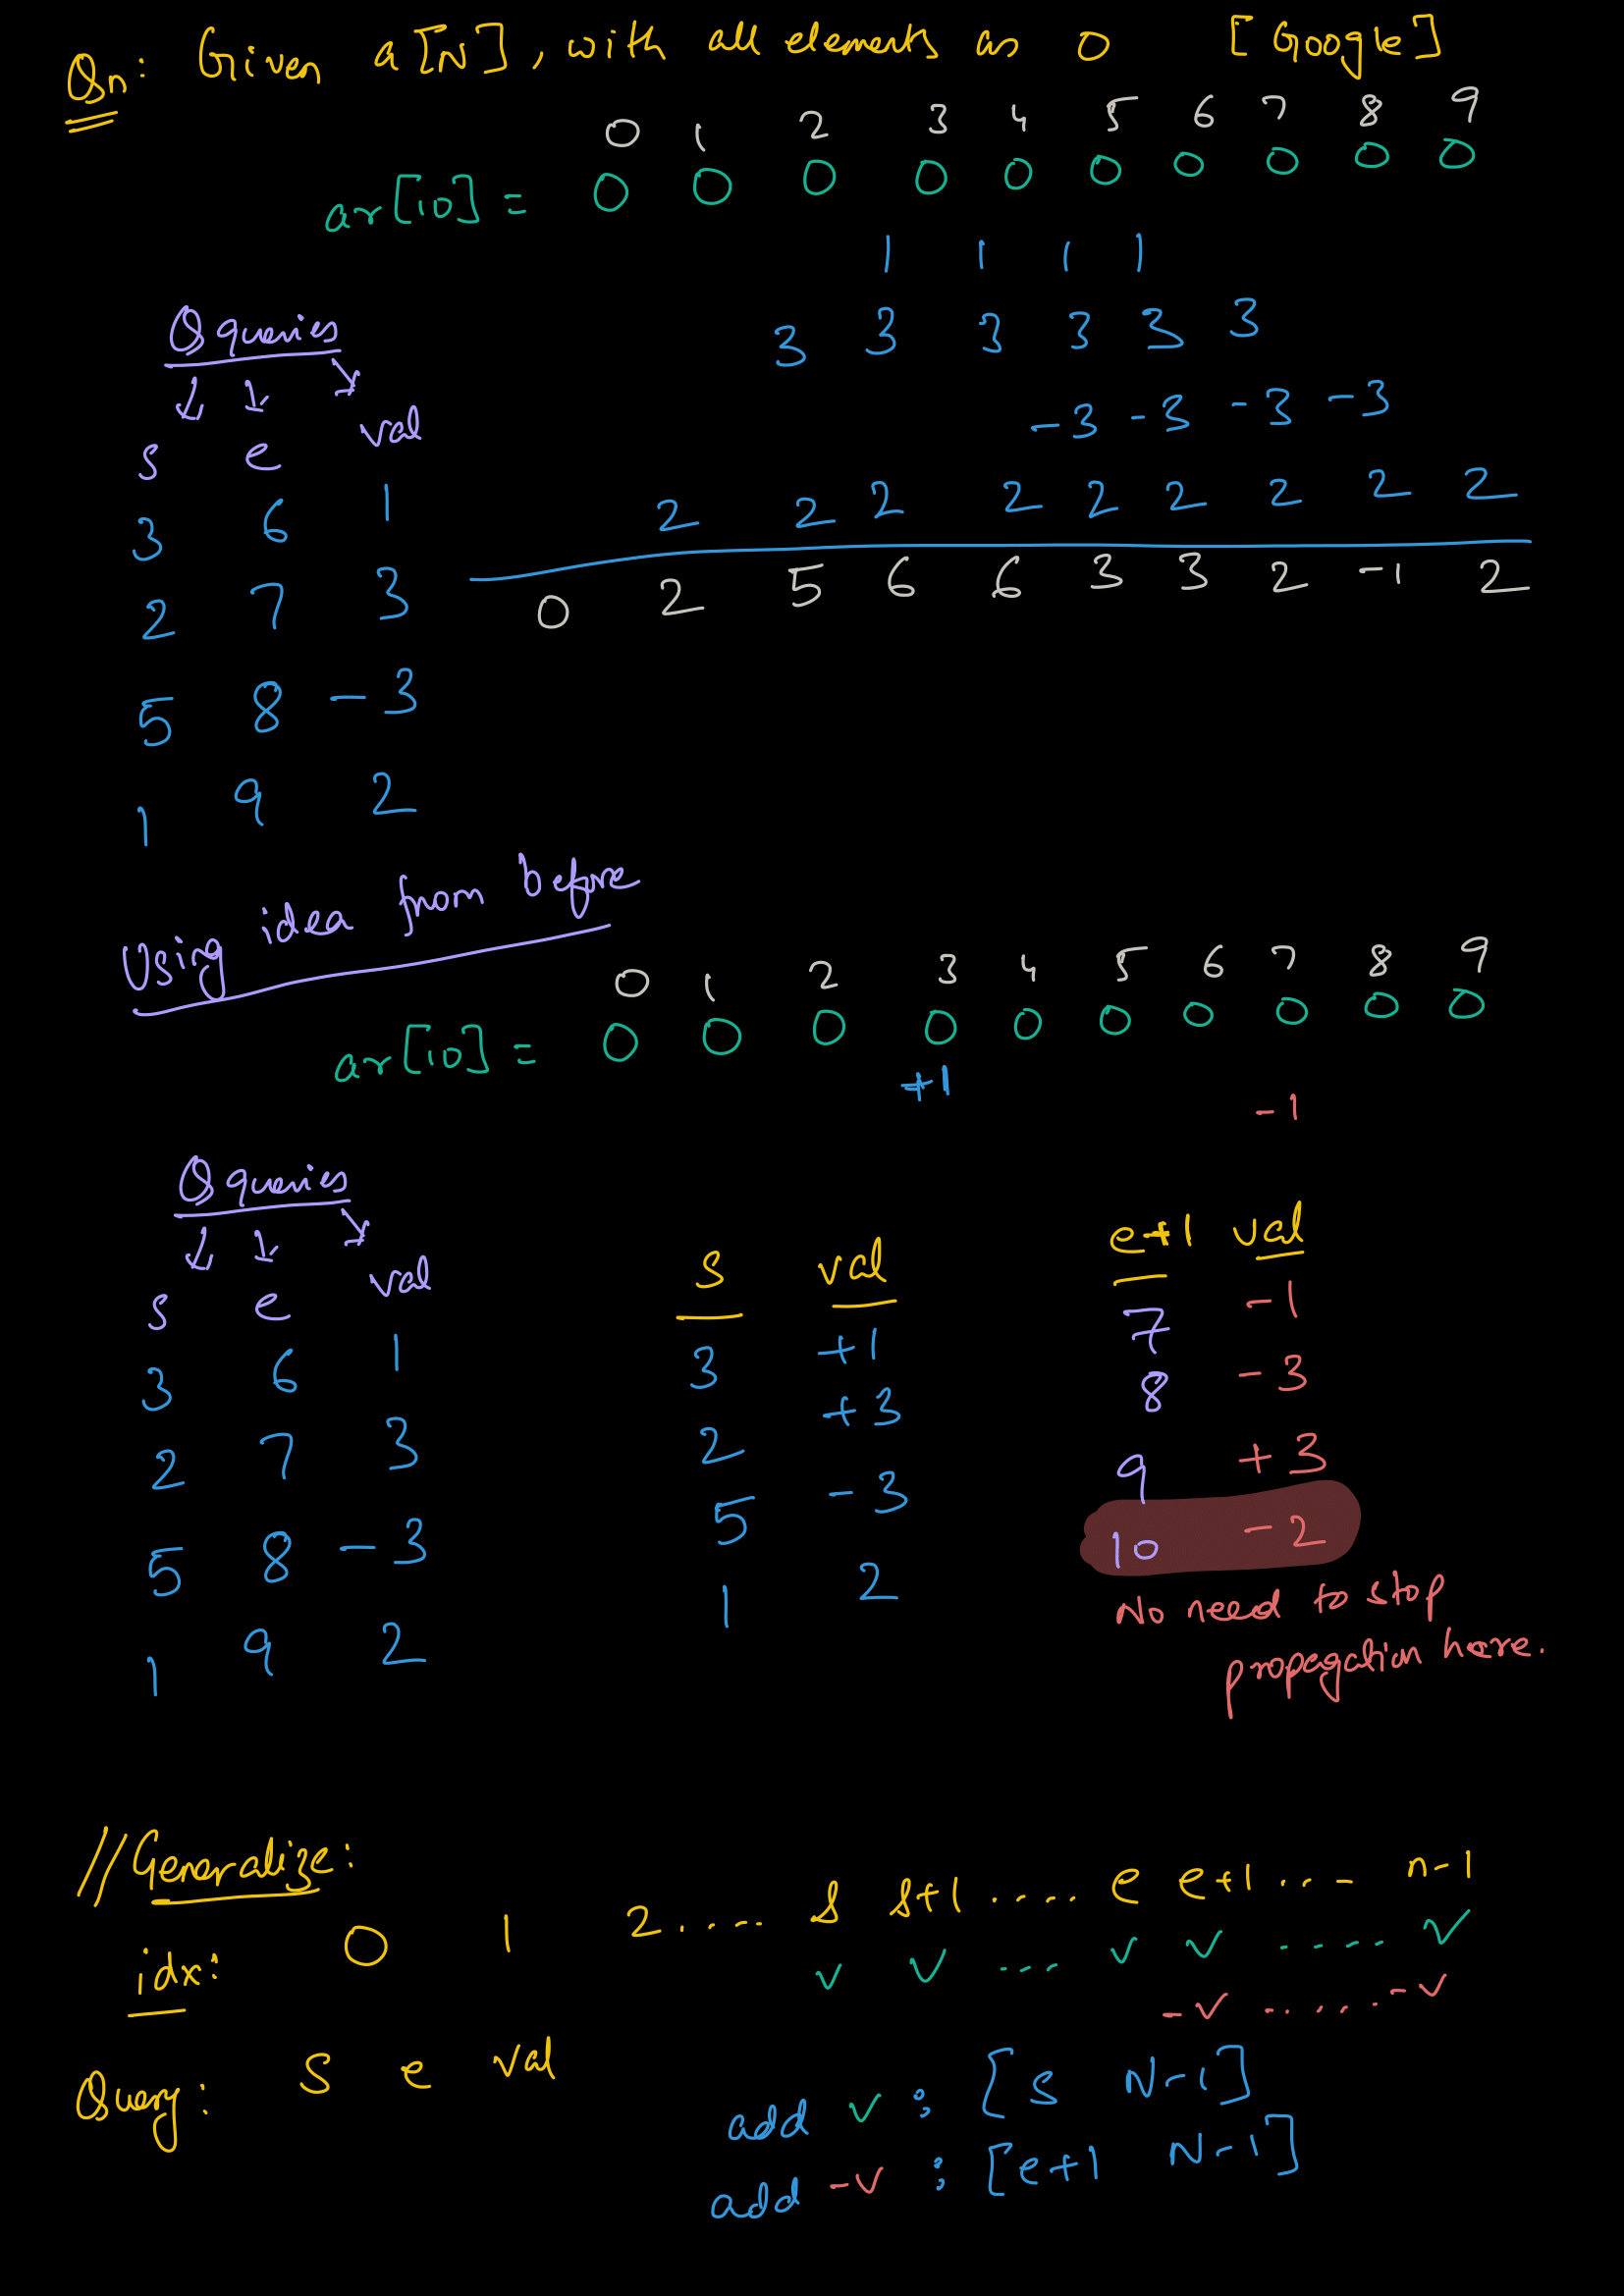 Qn: Given a[N], with all elements as 0 [Google]
0 1 2 3 4 5 6 7 8 9
ar[10] = 0 0 0 0 0 0 0 0 0 0
1 1 1 1
Q queries
3 3 3 3 3 3
↓ ↓ ↘
-3 -3 -3 -3
s e val
2 2 2 2 2 2 2 2 2
3 6 1
0 2 5 6 6 3 3 2 -1 2
2 7 3
5 8 -3
1 9 2
Using idea from before
0 1 2 3 4 5 6 7 8 9
ar[10] = 0 0 0 0 0 0 0 0 0 0
+1
-1
Q queries
↓ ↓ ↘
s e val
3 6 1
2 7 3
5 8 -3
1 9 2
s val
3 +1
2 +3
5 -3
1 2
e+1 val
7 -1
8 -3
9 +3
10 -2
No need to stop
propagation here.
//Generalize:
idx: 0 1 2.... s s+1 .... e e+1 ... - n-1
v v ... v v ..... v
-v ...... -v
Query: s e val
add v : [s N-1]
add -v : [e+1 N-1]